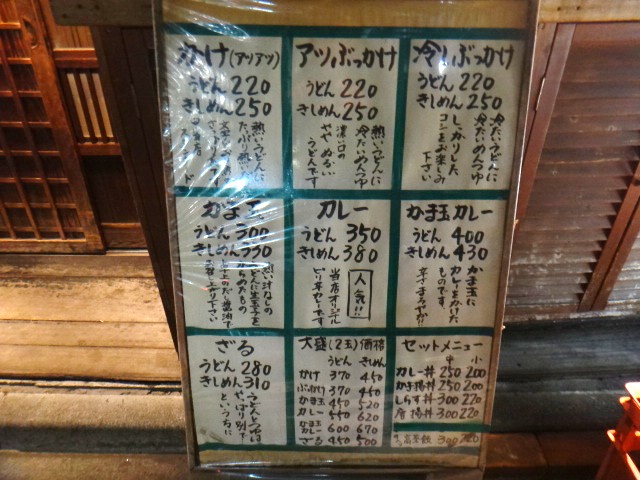 かけ(アツアツ)
うどん 220
きしめん 250
熱いうどんに
アツぶっかけ
うどん 220
きしめん 250
熱いうどんに
冷たいめんつゆ
濃い口の
ややぬるい
うどんです
冷しぶっかけ
うどん 220
きしめん 250
冷たいうどんに
冷たいめんつゆ
しっかりした
コシをお楽しみ
下さい
かま玉
うどん 300
きしめん 330
カレー
うどん 350
きしめん 380
人気!!
当店オリジナル
ピリ辛カレーです
かま玉カレー
うどん 400
きしめん 430
かま玉に
カレーをかけた
ものです。
辛さまろやか!!
ざる
うどん 280
きしめん 310
うどんとつゆは
やっぱり別で
という方に
大盛(2玉)価格
うどん きしめん
かけ 370 450
ぶっかけ 370 450
かま玉 450 520
カレー 550 620
かま玉カレー 600 670
ざる 450 500
セットメニュー
中 小
カレー丼 250 200
かま揚丼 250 200
しらす丼 300 220
唐揚丼 300 220
300 220